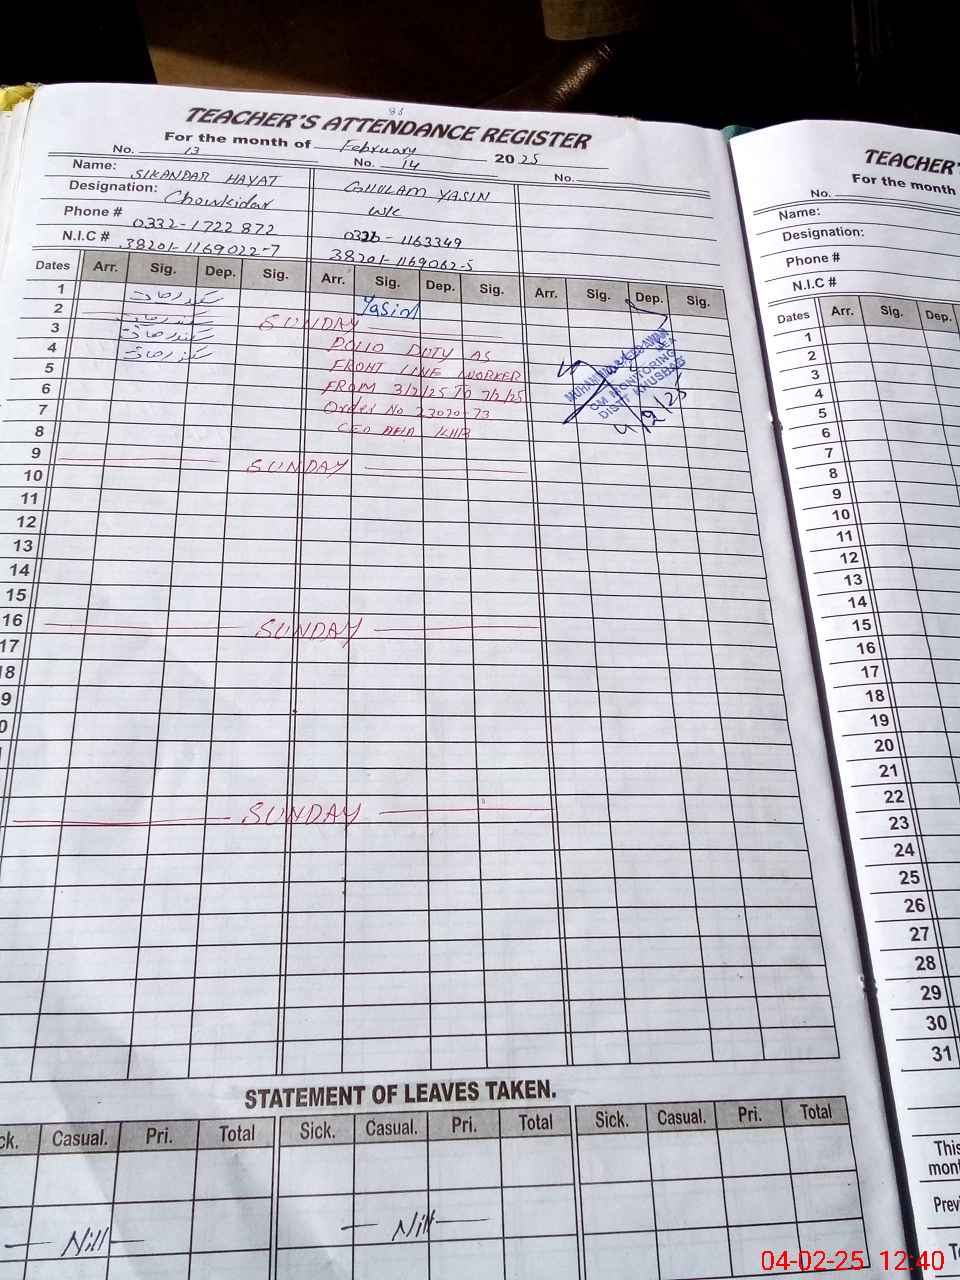 88
TEACHER'S ATTENDANCE REGISTER
For the month of February 2025
No. 13 No. 14 No.
Name: SIKANDAR HAYAT GHULAM YASIN
Designation: Chowkidar W/C
Phone # 0332-1722872 0326-1163349
N.I.C # 38201-1169022-7 38201-1169062-5
Dates Arr. Sig. Dep. Sig. Arr. Sig. Dep. Sig. Arr. Sig. Dep. Sig.
1 Yasin
2 SUNDAY
3 POLIO DUTY AS
4 FRONT LINE WORKER
5 FROM 3/2/25 TO 7/2/25
6 Order No 23020-73
7 CEO DHA KHB
8
9 SUNDAY
10
11
12
13
14
15
16 SUNDAY
17
18
9
0
SUNDAY
MUHAMMAD
CM MONITORING
DISTT KHUSHAB
4/2/25
STATEMENT OF LEAVES TAKEN.
ck. Casual. Pri. Total Sick. Casual. Pri. Total Sick. Casual. Pri. Total
Nill Nill
TEACHER'
For the month
No.
Name:
Designation:
Phone #
N.I.C #
Dates Arr. Sig. Dep.
1
2
3
4
5
6
7
8
9
10
11
12
13
14
15
16
17
18
19
20
21
22
23
24
25
26
27
28
29
30
31
This
mont
Previ
T
04-02-25 12:40